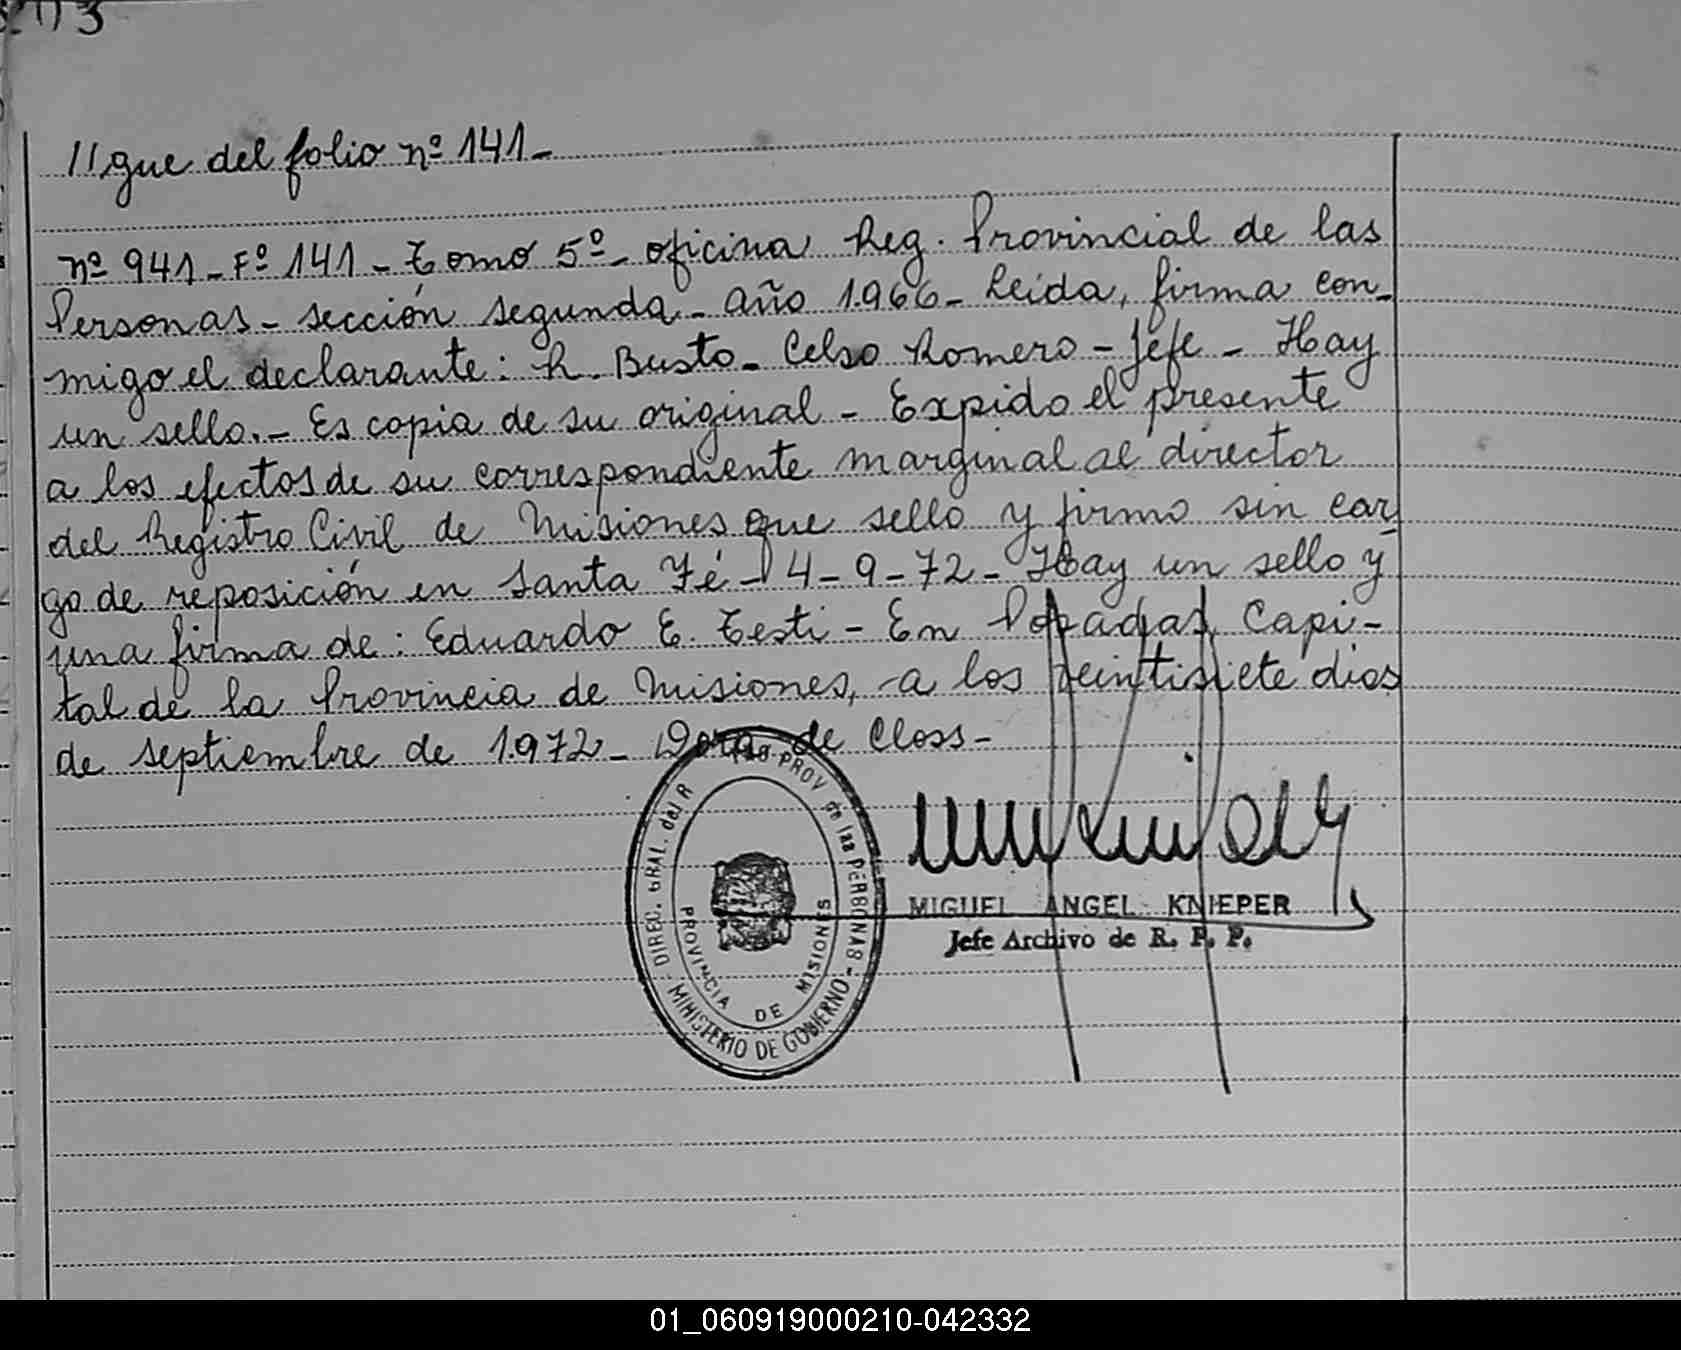 //gue del folio nº 141-
nº 941- Fº 141- Tomo 5º- oficina Reg. Provincial de las
Personas- sección segunda- año 1.966- Leída, firma con-
migo el declarante: R. Busto- Celso Romero- Jefe- Hay
un sello.- Es copia de su original- Expido el presente
a los efectos de su correspondiente marginal al director
del Registro Civil de Misiones que sello y firmo sin car
go de reposición en Santa Fé- 4-9-72- Hay un sello y
una firma de: Eduardo E. Testi- En Posadas, Capi-
tal de la Provincia de Misiones, a los veintisiete dias
de septiembre de 1.972- Dora de Closs-
DIREC. GRAL. del R PROV de las PERSONAS -
MINISTERIO DE GOBIERNO
PROVINCIA DE MISIONES
MIGUEL ANGEL KNIEPER
Jefe Archivo de R. P. P.
01_060919000210-042332